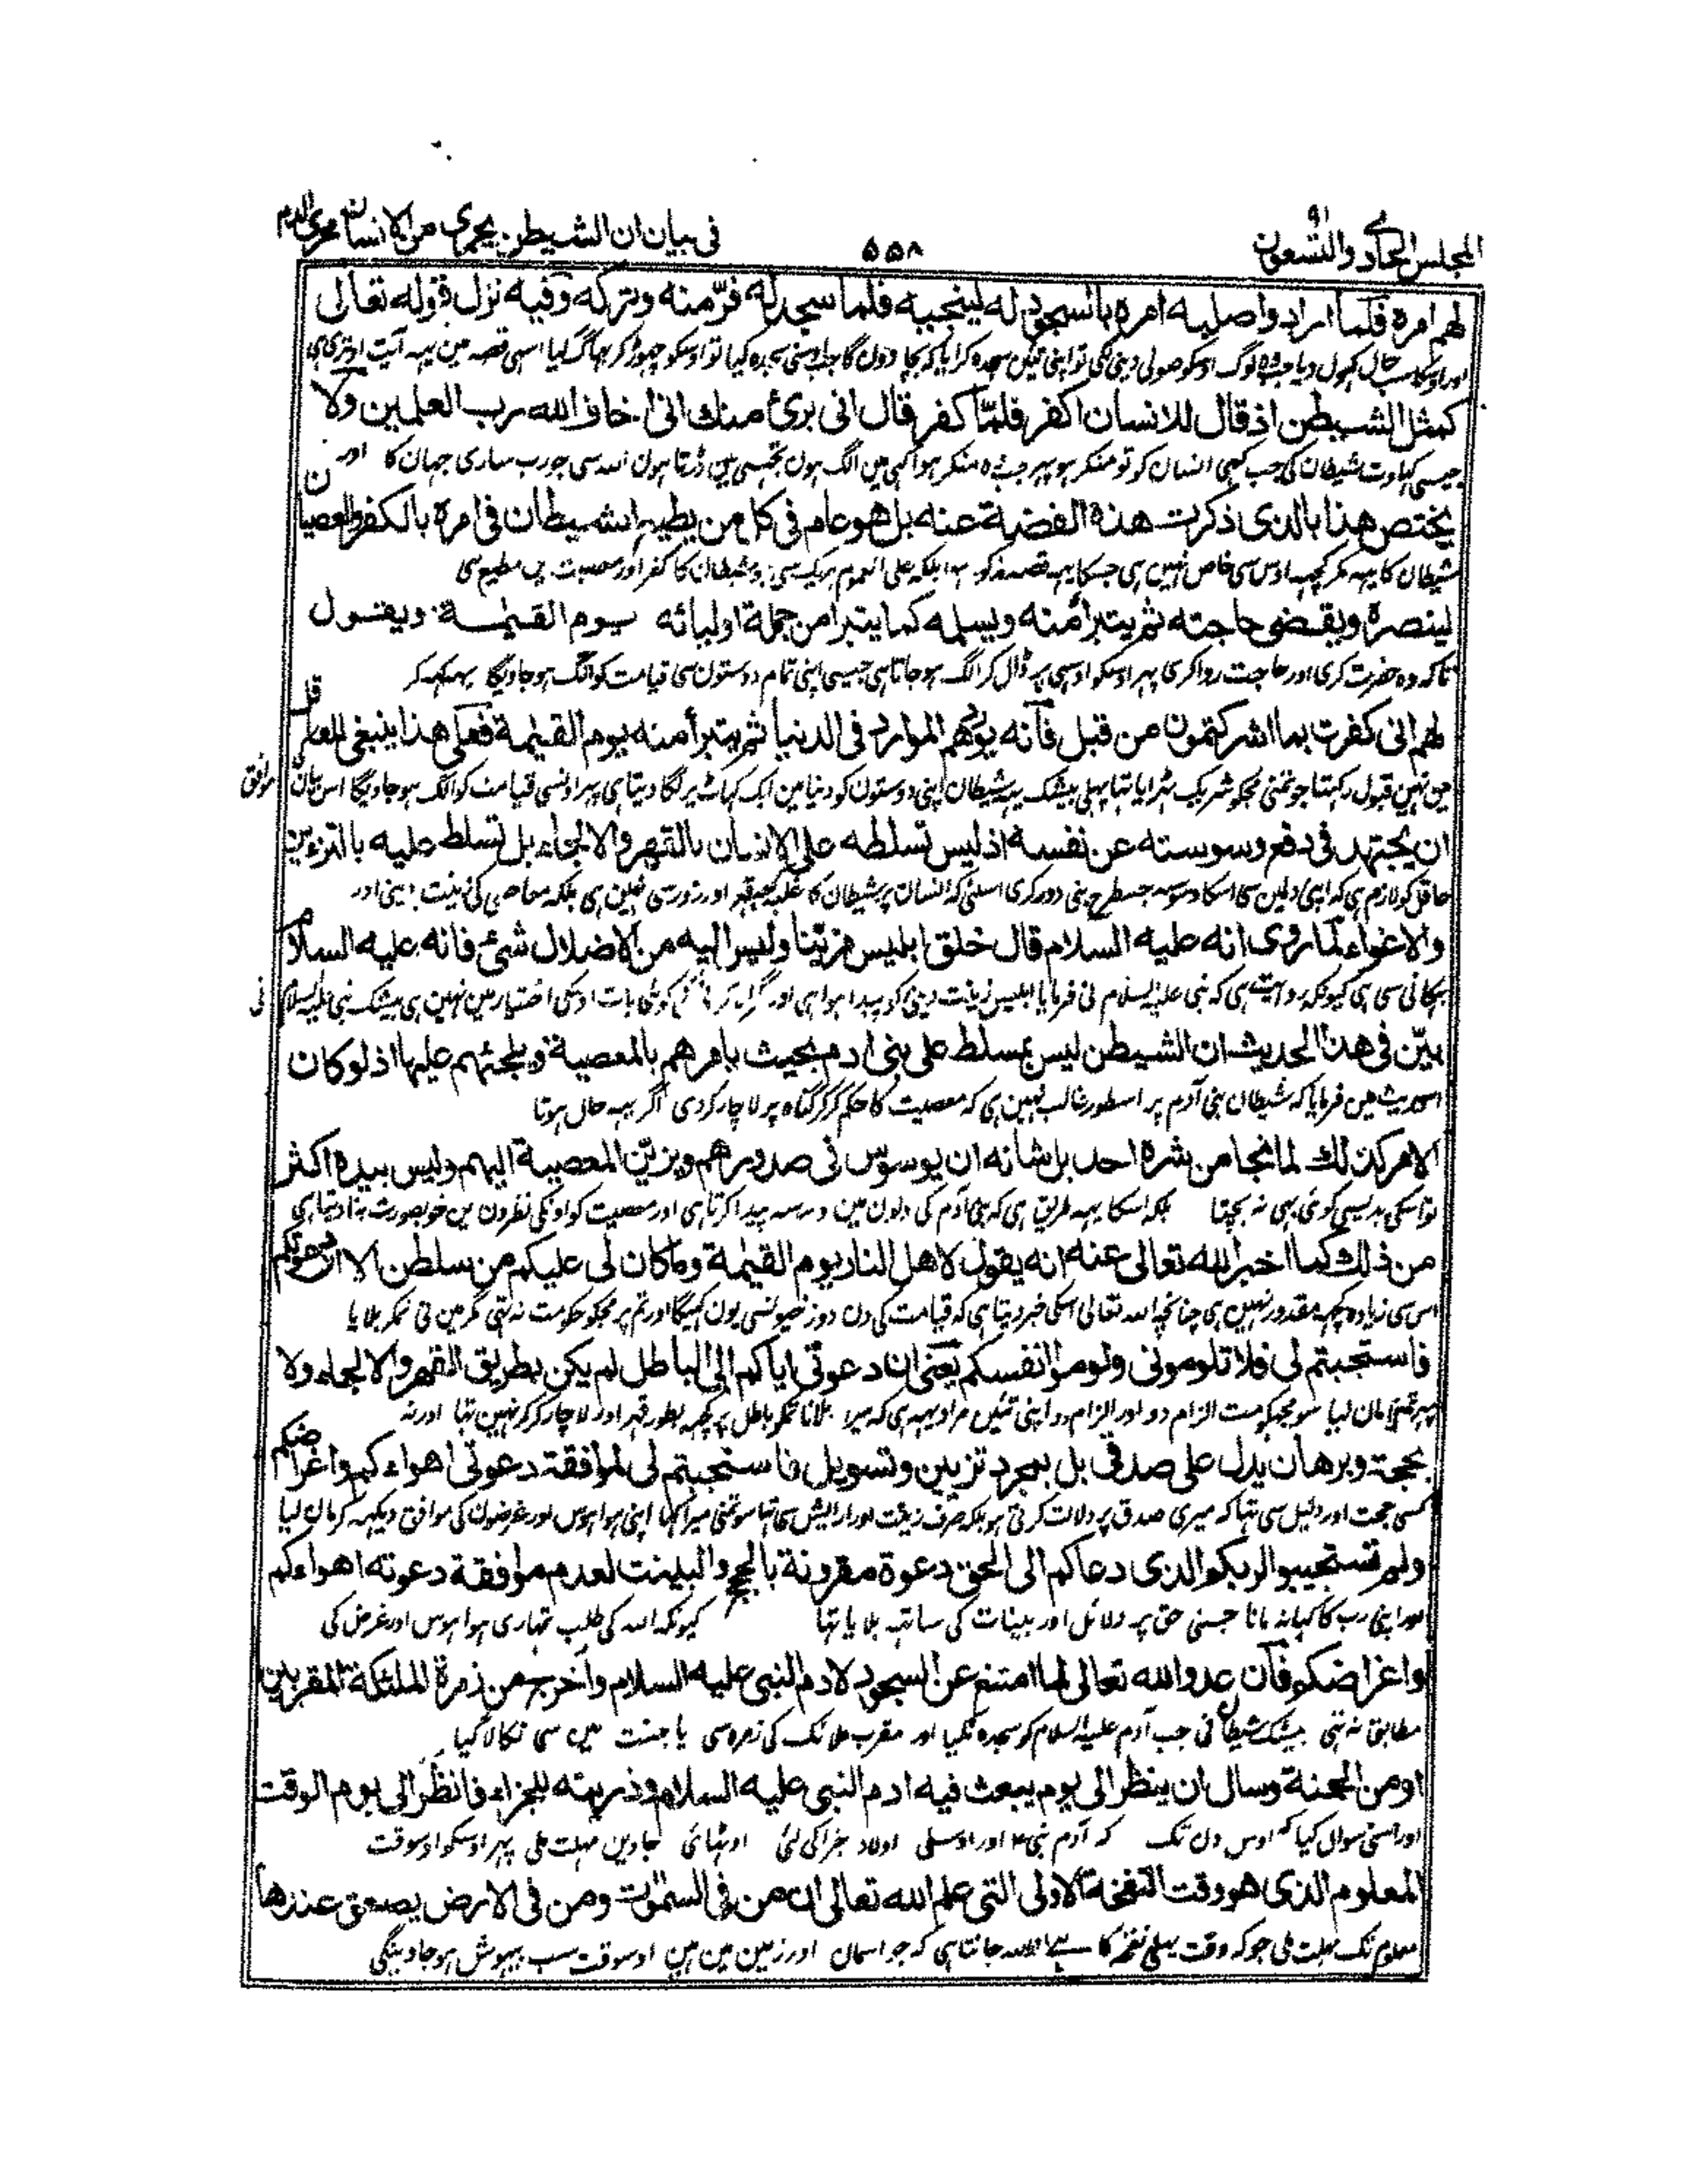 المجلس الحادي والتسعون ٩١
٥٥٨
فى بيان ان الشيطن يجرى من الانسان مجرى الدم
لهم امره فلما ارادوا صلبه امره بالسجود له لينجيه فلما سجد له فرّ منه وتركه وفيه نزل قوله تعالى
اور اوسکا سب حال کہول دیا جب وہ لوگ اوسکو صولی دینی لگی تو اپنی تئین سجدہ کرایا کہ بچا دون گا جب اوسنی سجدہ کیا تو اوسکو چہوڑ کر بہاگ گیا اسی قصہ مین یہہ آیت اوتری ہی
كمثل الشيطن اذ قال للانسان اكفر فلمّا كفر قال انى برئ منك انى اخاف الله رب العلمين ولا
جیسی کہاوت شیطان کی جب کہی انسان کو تو منکر ہو پہر جب وہ منکر ہوا کہی مین الگ ہون تجہسی مین ڈرتا ہون اللہ سی جو رب ساری جہان کا اور
يختص هذا بالذى ذكرت هذه القضية عنه بل هو عام فى كل من يطيع الشيطان فى امره بالكفر والعصيان
شیطان کا یہہ مکر کچہہ اوس سی خاص نہین ہی جسکا یہہ قصہ مذکور ہوا بلکہ علی العموم ہر یک سی جو شیطان کا کفر اور معصیت مین مطیع ہی
لينصره ويقضى حاجته ثم يتبرأ منه ويسلمه كما يتبرأ من جملة اوليائه يوم القيمة ويقول
تاکہ وہ حضرت کری اور حاجت روا کری پہر اوسکو اوسی پر ڈال کر الگ ہو جاتا ہی جیسی اپنی تمام دوستون سی قیامت کو الگ ہو جاویگا یہہ کہہ کر
لهم انى كفرت بما اشركتمون من قبل فانه يوردهم الموارد فى الدنيا ثم يتبرأ منه يوم القيمة فعلى هذا ينبغى للعاقل
مین نہین قبول رکہتا جو تمنی مجکو شریک ٹہرایا تہا پہلی بیشک یہہ شیطان اپنی دوستون کو دنیا مین ایک گہاٹ پر لگا دیتا ہی پہر اونسی قیامت کو الگ ہو جاویگا اس بیان کی موافق
ان يجتهد فى دفع وسوسته عن نفسه اذ ليس تسلطه على الانسان بالقهر والالجاء بل تسلط عليه بالتزيين
عاقل کو لازم ہی کہ اپنی دلین سی اسکا وسوسہ جسطرح بنی دور کری اسلئی کہ انسان پر شیطان کا غلبہ کچہہ قہر اور زور سی نہین ہی بلکہ معاصی کی زینت دینی اور
والاغواء لما روى انه عليه السلام قال خلق ابليس مزينا وليس اليه من الاضلال شئ فانه عليه السلام
بہکانی سی ہی کیونکہ روایت ہی کہ نبی علیہ السلام نی فرمایا ابلیس زینت دینی کو پیدا ہوا ہی اور کوئی بات اوسکی اختیار مین نہین ہی بیشک نبی علیہ السلام نی
بيّن فى هذا الحديث ان الشيطن ليس بمسلط على بنى ادم بحيث يامرهم بالمعصية ويلجئهم عليها اذ لو كان
اس حدیث مین فرمایا کہ شیطان بنی آدم پر اسطور غالب نہین ہی کہ معصیت کا حکم کر کر گناہ پر لاچار کر دی اگر یہہ حال ہوتا
الامر كذلك لما نجا من شره احد بل شانه ان يوسوس فى صدورهم ويزيّن المعصية اليهم وليس بيده اكثر
تو اسکی بدیسی کوئی بہی نہ بچتا بلکہ اسکا یہہ طریق ہی کہ بنی آدم کی دلون مین وسوسہ پیدا کرتا ہی اور معصیت کو اونکی نظرون مین خوبصورت بنا دیتا ہی
من ذلك كما اخبر الله تعالى عنه انه يقول لاهل النار يوم القيمة وماكان لى عليكم من سلطن الا ان دعوتكم
اس سی زیادہ کچہہ مقدور نہین ہی چنانچہ اللہ تعالی اسکی خبر دیتا ہی کہ قیامت کی دن دوزخیونسی یون کہیگا اور تم پر مجکو حکومت نہ تہی مگر مین نی تمکو بلایا
فاستجبتم لى فلا تلومونى ولوموا انفسكم يعنى ان دعوتى اياكم الى الباطل لم يكن بطريق القهر والالجاء ولا
پہر تمنی مان لیا سو مجہکو مت الزام دو اور الزام دو اپنی تئین مراد یہہ ہی کہ میرا بلانا تمکو باطل پر کچہہ بطور قہر اور لاچار کر کر نہین تہا اور نہ
بحجة وبرهان يدل على صدقى بل بمجرد تزيين وتسويل فاستجبتم لى لموافقة دعوتى اهواءكم واغراضكم
کسی حجت اور دلیل سی تہا کہ میری صدق پر دلالت کرتی ہو بلکہ صرف زینت اور آرایش سی تہا سو تمنی میرا کہا اپنی ہوا ہوس اور غرضون کی موافق دیکہہ کر مان لیا
ولم تستجيبوا لربكم الذى دعاكم الى الحق دعوة مقرونة بالحجج والبينت لعدم موافقة دعوته اهواءكم
اور اپنی رب کا کہا نہ مانا جسنی حق پر دلائل اور بینات کی ساتہہ بلایا تہا کیونکہ اللہ کی طلب تمہاری ہوا ہوس اور غرض کی
واغراضكم فان عدو الله تعالى لما امتنع عن السجود لادم النبى عليه السلام واخرج من زمرة الملئكة المقربين
مطابق نہ تہی بیشک شیطان نی جب آدم علیہ السلام کو سجدہ نکیا اور مقرب ملائک کی زمرہ سی یا جنت مین سی نکالا گیا
او من الجنة وسال ان ينظر الى يوم يبعث فيه ادم النبى عليه السلام وذريته للجزاء فانظر الى يوم الوقت
اور اسنی سوال کیا کہ اوس دن تک کہ آدم نبی ع اور اوسکی اولاد جزا کی لئی اوٹہائی جاوین مہلت ملی پہر اوسکو اوسوقت
المعلوم الذى هو وقت النفخة الاولى التى علم الله تعالى ان من فى السموت ومن فى الارض يصعق عندها
معلوم تک مہلت ملی جو کہ وقت پہلی نفخہ کا ہی اللہ جانتا ہی کہ جو اسمان اور زمین مین ہین اوسوقت سب بیہوش ہو جاوینگی